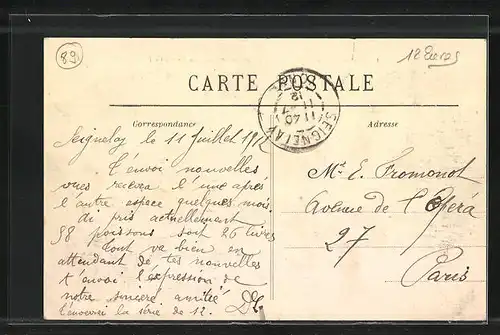 89
12 Euros
CARTE POSTALE
Correspondance
Adresse
SEIGNELAY
11 40
12
Seignelay le 11 Juillet 1912
t'envoi nouvelles
vues l'une après
l'autre espace quelques mois.
pris actuellement
98 poissons soit 26 livres
tout va bien en
attendant de tes nouvelles
t'envoi l'expression de
notre sincère amitié
la série de 12.
Mr E. Fromonot
Avenue de l'Opéra
27
Paris